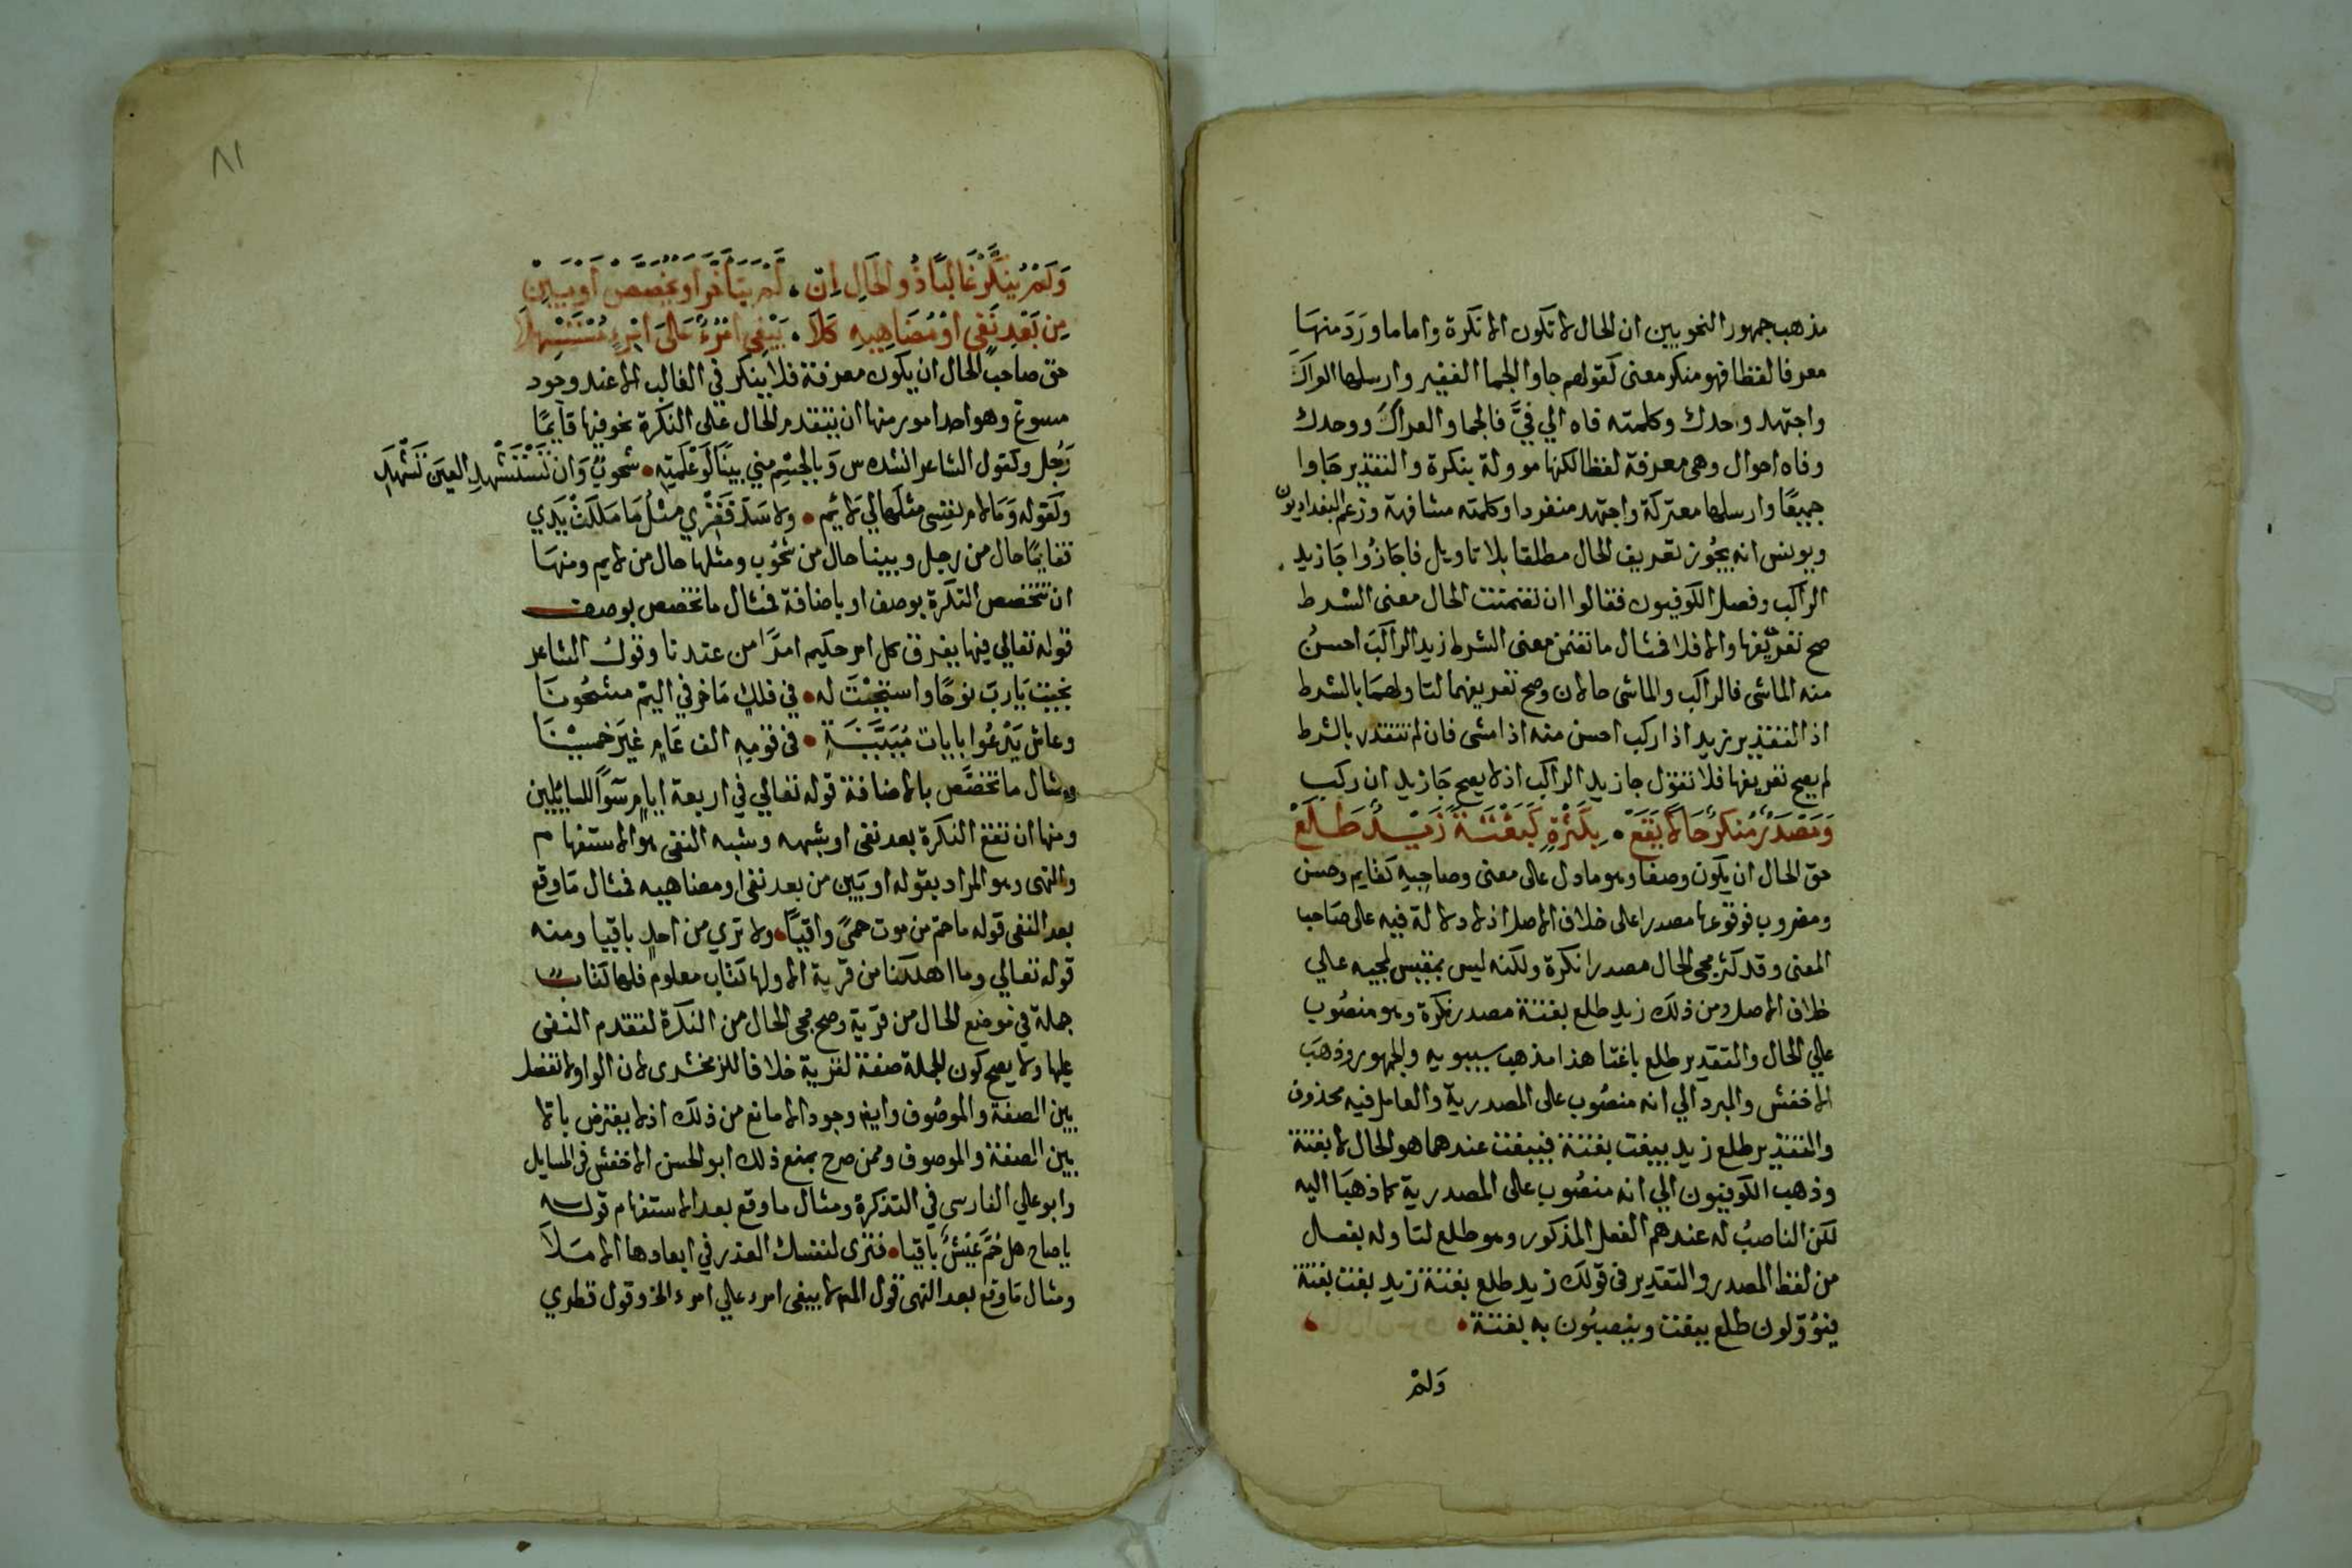 مذهب جمهور النحويين ان الحال لا تكون الا نكرة واما ما ورد منها
معرفا لفظا فهو منكر معنى كقولهم جاوا الجما الغفير وارسلها العراك
واجتهد وحدك وكلمته فاه الي فيَّ فالجما والعراك ووحدك
وفاه احوال وهي معرفة لفظا لكنها موولة بنكرة والتقدير جاوا
جميعًا وارسلها معتركة واجتهد منفردا وكلمته مشافهة وزعم البغداديون
ويونس انه يجُوز تعريف الحال مطلقا بلا تاويل فاجازُوا جَا زيد
الراكب وفصل الكوفيون فقالوا ان تضمنت الحال معنى الشرط
صح تعريفها والا فلا فمثال ما تضمن معنى الشرط زيد الراكبَ احسنُ
منه الماشى فالراكب والماشى حالان وصح تعريفهما لتاولهما بالشرط
اذ التقدير زيد اذا ركب احسن منه اذا مشى فان لم تتقدر بالشرط
لم يصح تعريفها فلا تقول جا زيد الراكب اذ لا يصح جَا زيد ان ركب
وَمَصْدَرٌ مُنَكَّرٌ حَالاً يَقَعْ ۰ بِكَثْرَةٍ كَبَغْتَةً زَيْدٌ طَلَعْ
حق الحال ان يكون وصفا وهو ما دل على معنى وصاحبه كقايم وحسن
ومضروب فوقوعها مصدرا على خلاف الاصل اذ لا دلالة فيه على صَاحب
المعنى وقد كثر مجى الحال مصدرا نكرة ولكنه ليس بمقيس لمجيه علي
خلاف الاصل ومن ذلك زيد طلع بغتة مصدر نكرة وهو منصُوب
علي الحال والتقدير طلع باغتا هذا مذهب سيبويه والجمهور وذهَبَ
الاخفش والمبرد الي انه منصُوب على المصدرية والعامل فيه محذوف
والتقدير طلع زيد يبغت بغتة فيبغت عندهما هو الحال لا بغتة
وذهب الكوفيون الي انه منصُوب على المصدرية كما ذهبَا اليه
لكن الناصبُ له عندهم الفعل المذكور وهو طلع لتاوله بفعل
من لفظ المصدر والتقدير فى قولك زيد طلع بغتة زيد بغت بغتة
فيؤوّلون طلع ببغت وينصبُون به بغتة
وَلمْ
٨١
وَلَمْ يُنَكَّرْ غَالِبًا ذُو الحَالِ اِنْ ۰ لَمْ يَتَأَخَّرْ اَوْ يُخَصَّصْ اَوْ يَبِنْ
مِن بَعْدِ نَفْي اَوْ مُضَاهِيهِ كَلاَ ۰ يَبْغِي امْرُؤٌ عَلَى امْرِءٍ مُسْتَسْهِلاَ
حق صاحب الحال ان يكون معرفة فلا ينكر في الغالب الا عند وجود
مسوغ وهو احد امور منها ان يتقدم الحال علي النكرة نحو فيها قايمًا
رَجُل وكقول الشاعر انشده س وَبالجِسْمِ مني بيّنًا لَوْ عَلمتِهِ ۰ شحوبٌ وَان تَسْتَشْهدِ العينَ تَشْهَدِ
وكقوله وَمَا لام نفسِى مثلَها ليَ لايم ۰ ولا سَدّ فَقْرِي مثْلُ مَا مَلَكَتْ يَدِي
فقايمًا حال من رجل وبينا حال من شحُوب ومثلها حال من لايم ومنهَا
ان تتخصص النكرة بوصف او باضافة فمثال ما تخصص بوصف
قوله تعالي فيها يفرق كل امر حكيم امرًا من عندنا وقولُ الشاعر
نجيتَ يَا ربّ نوحًا واستجبْتَ له ۰ في فلكٍ مَاخرٍ في اليَمّ مشحُونَا
وعاش يَدْعُوا بايات مُبَيَّنَةٍ ۰ فى قومِهِ الف عَامٍ غيَر خمسِيْنَا
ومثال ما تخصَّص بالاضافة قوله تعالي في اربعة ايامٍ سَوآءً للسائلين
ومنها ان تقع النكرة بعد نفى او شبهه وشبه النفى هو الاستفهام
والنهى وهو المراد بقوله او يَبِن من بعد نفى او مضاهيه فمثال مَا وقع
بعد النفى قوله ما حم من موت حمىً واقيًا ۰ ولا تري من احدٍ باقيا ومنه
قوله تعالي وما اهلكنا من قرية الا ولها كتاب معلوم فلها كتاب
جملة في موضع الحال من قرية وصح مجى الحال من النكرة لتقدم النفى
عليها ولا يصح كون الجملة صفة لقرية خلافا للزمخشرى لان الواو لا تفصل
بين الصفة والموصُوف وايضا وجود الا مانع من ذلك اذ لا يعترض بالا
بين الصفة والموصوف وممن صرح بمنع ذلك ابو الحسن الاخفش في المسايل
وابو علي الفارسي في التذكرة ومثال ما وقع بعد الاستفهام قوله
يا صاح هل حُمَّ عَيْشٌ باقيا ۰ فترى لنفسك العذر في ابعادها الامَلاَ
ومثال مَا وقع بعد النهى قول المص لا يبغى امرء علي امرء الخ وقول قطري